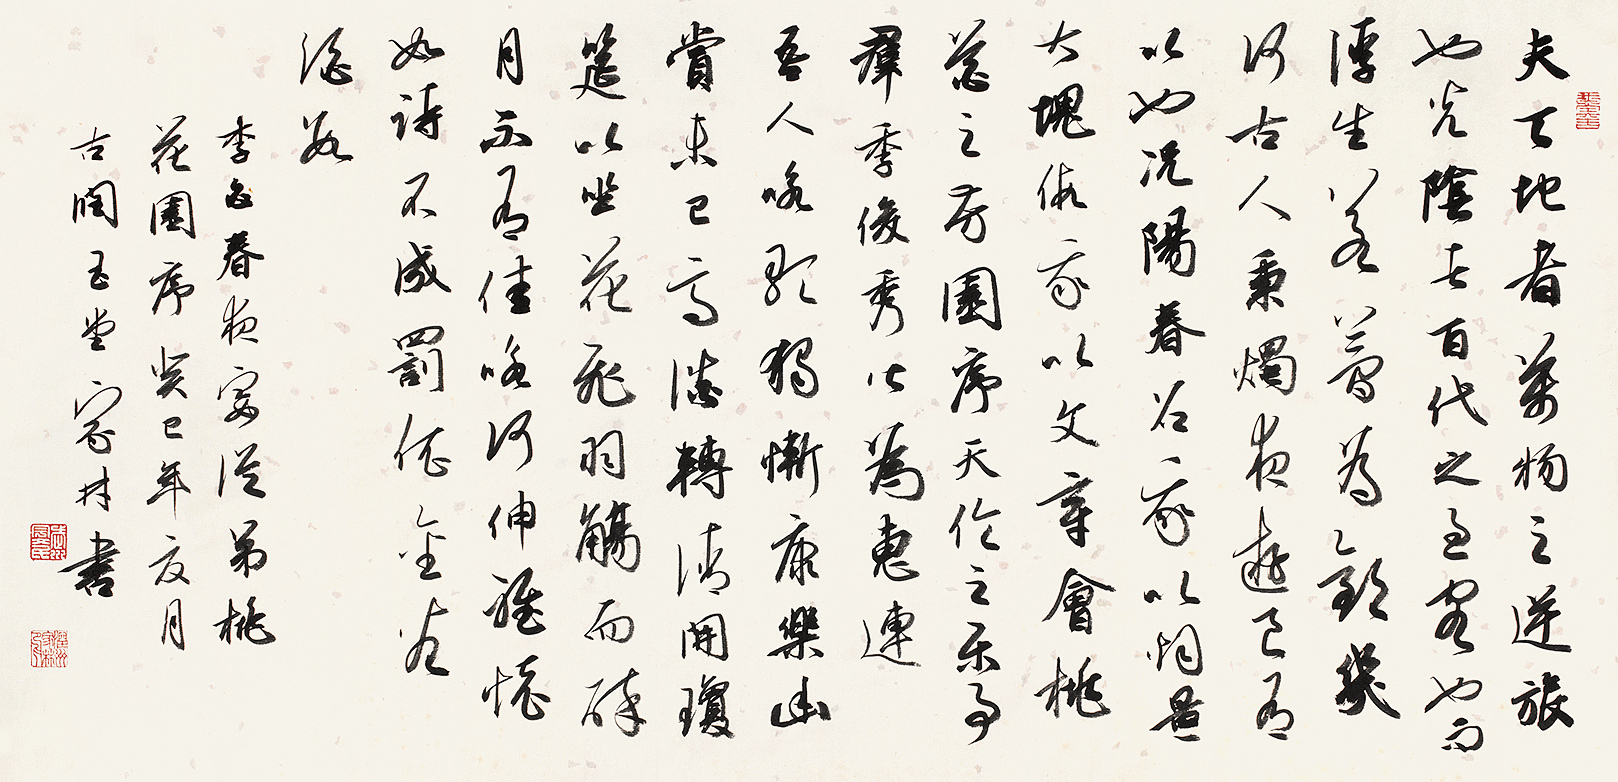 夫天地者萬物之逆旅
也光陰者百代之過客也而
浮生若夢為歡幾
何古人秉燭夜遊良有
以也況陽春召我以烟景
大塊假我以文章會桃
花之芳園序天倫之樂事
群季俊秀皆為惠連
吾人詠歌獨慚康樂幽
賞未已高談轉清開瓊
筵以坐花飛羽觴而醉
月不有佳詠何伸雅懷
如詩不成罰依金谷
酒數
李白春夜宴從弟桃
花園序癸巳年夏月
古潤玉堂家林書